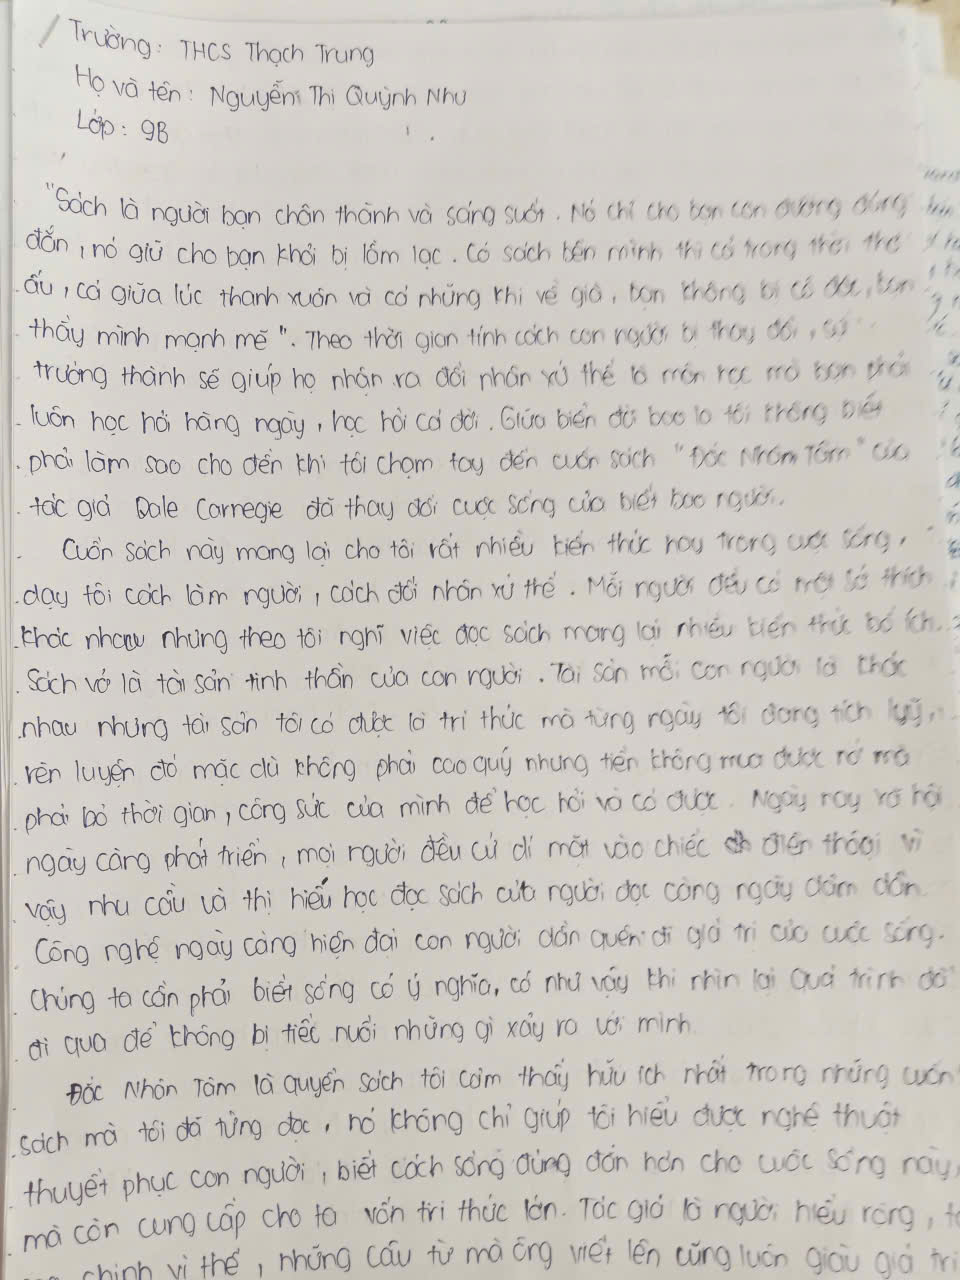 Trường: THCS Thạch Trung
Họ và tên: Nguyễn Thị Quỳnh Như
Lớp: 9B
"Sách là người bạn chân thành và sáng suốt. Nó chỉ cho bạn con đường đúng
đắn, nó giữ cho bạn khỏi bị lầm lạc. Có sách bên mình thì cả trong thời thơ
ấu, cả giữa lúc thanh xuân và cả những khi về già, bạn không bị cô độc, bạn
thấy mình mạnh mẽ". Theo thời gian tính cách con người bị thay đổi, sự
trưởng thành sẽ giúp họ nhận ra đối nhân xử thế là môn học mà bạn phải
luôn học hỏi hằng ngày, học hỏi cả đời. Giữa biển đời bao la tôi không biết
phải làm sao cho đến khi tôi chạm tay đến cuốn sách "Đắc Nhân Tâm" của
tác giả Dale Carnegie đã thay đổi cuộc sống của biết bao người.
Cuốn sách này mang lại cho tôi rất nhiều kiến thức hay trong cuộc sống,
dạy tôi cách làm người, cách đối nhân xử thế. Mỗi người đều có một sở thích
khác nhau nhưng theo tôi nghĩ việc đọc sách mang lại nhiều kiến thức bổ ích.
Sách vở là tài sản tinh thần của con người. Tài sản mỗi con người là khác
nhau nhưng tài sản tôi có được là tri thức mà từng ngày tôi đang tích luỹ,
rèn luyện đó mặc dù không phải cao quý nhưng tiền không mua được nó mà
phải bỏ thời gian, công sức của mình để học hỏi và có được. Ngày nay xã hội
ngày càng phát triển, mọi người đều cứ dí mặt vào chiếc điện thoại vì
vậy nhu cầu và thị hiếu học đọc sách của người đọc càng ngày dầm dần.
Công nghệ ngày càng hiện đại con người dần quên đi giá trị của cuộc sống.
Chúng ta cần phải biết sống có ý nghĩa, có như vậy khi nhìn lại quá trình đã
đi qua để không bị tiếc nuối những gì xảy ra với mình.
Đắc Nhân Tâm là quyển sách tôi cảm thấy hữu ích nhất trong những cuốn
sách mà tôi đã từng đọc, nó không chỉ giúp tôi hiểu được nghệ thuật
thuyết phục con người, biết cách sống đúng đắn hơn cho cuộc sống này,
mà còn cung cấp cho ta vốn tri thức lớn. Tác giả là người hiểu rộng,
chính vì thế, những câu từ mà ông viết lên cũng luôn giàu giá trị